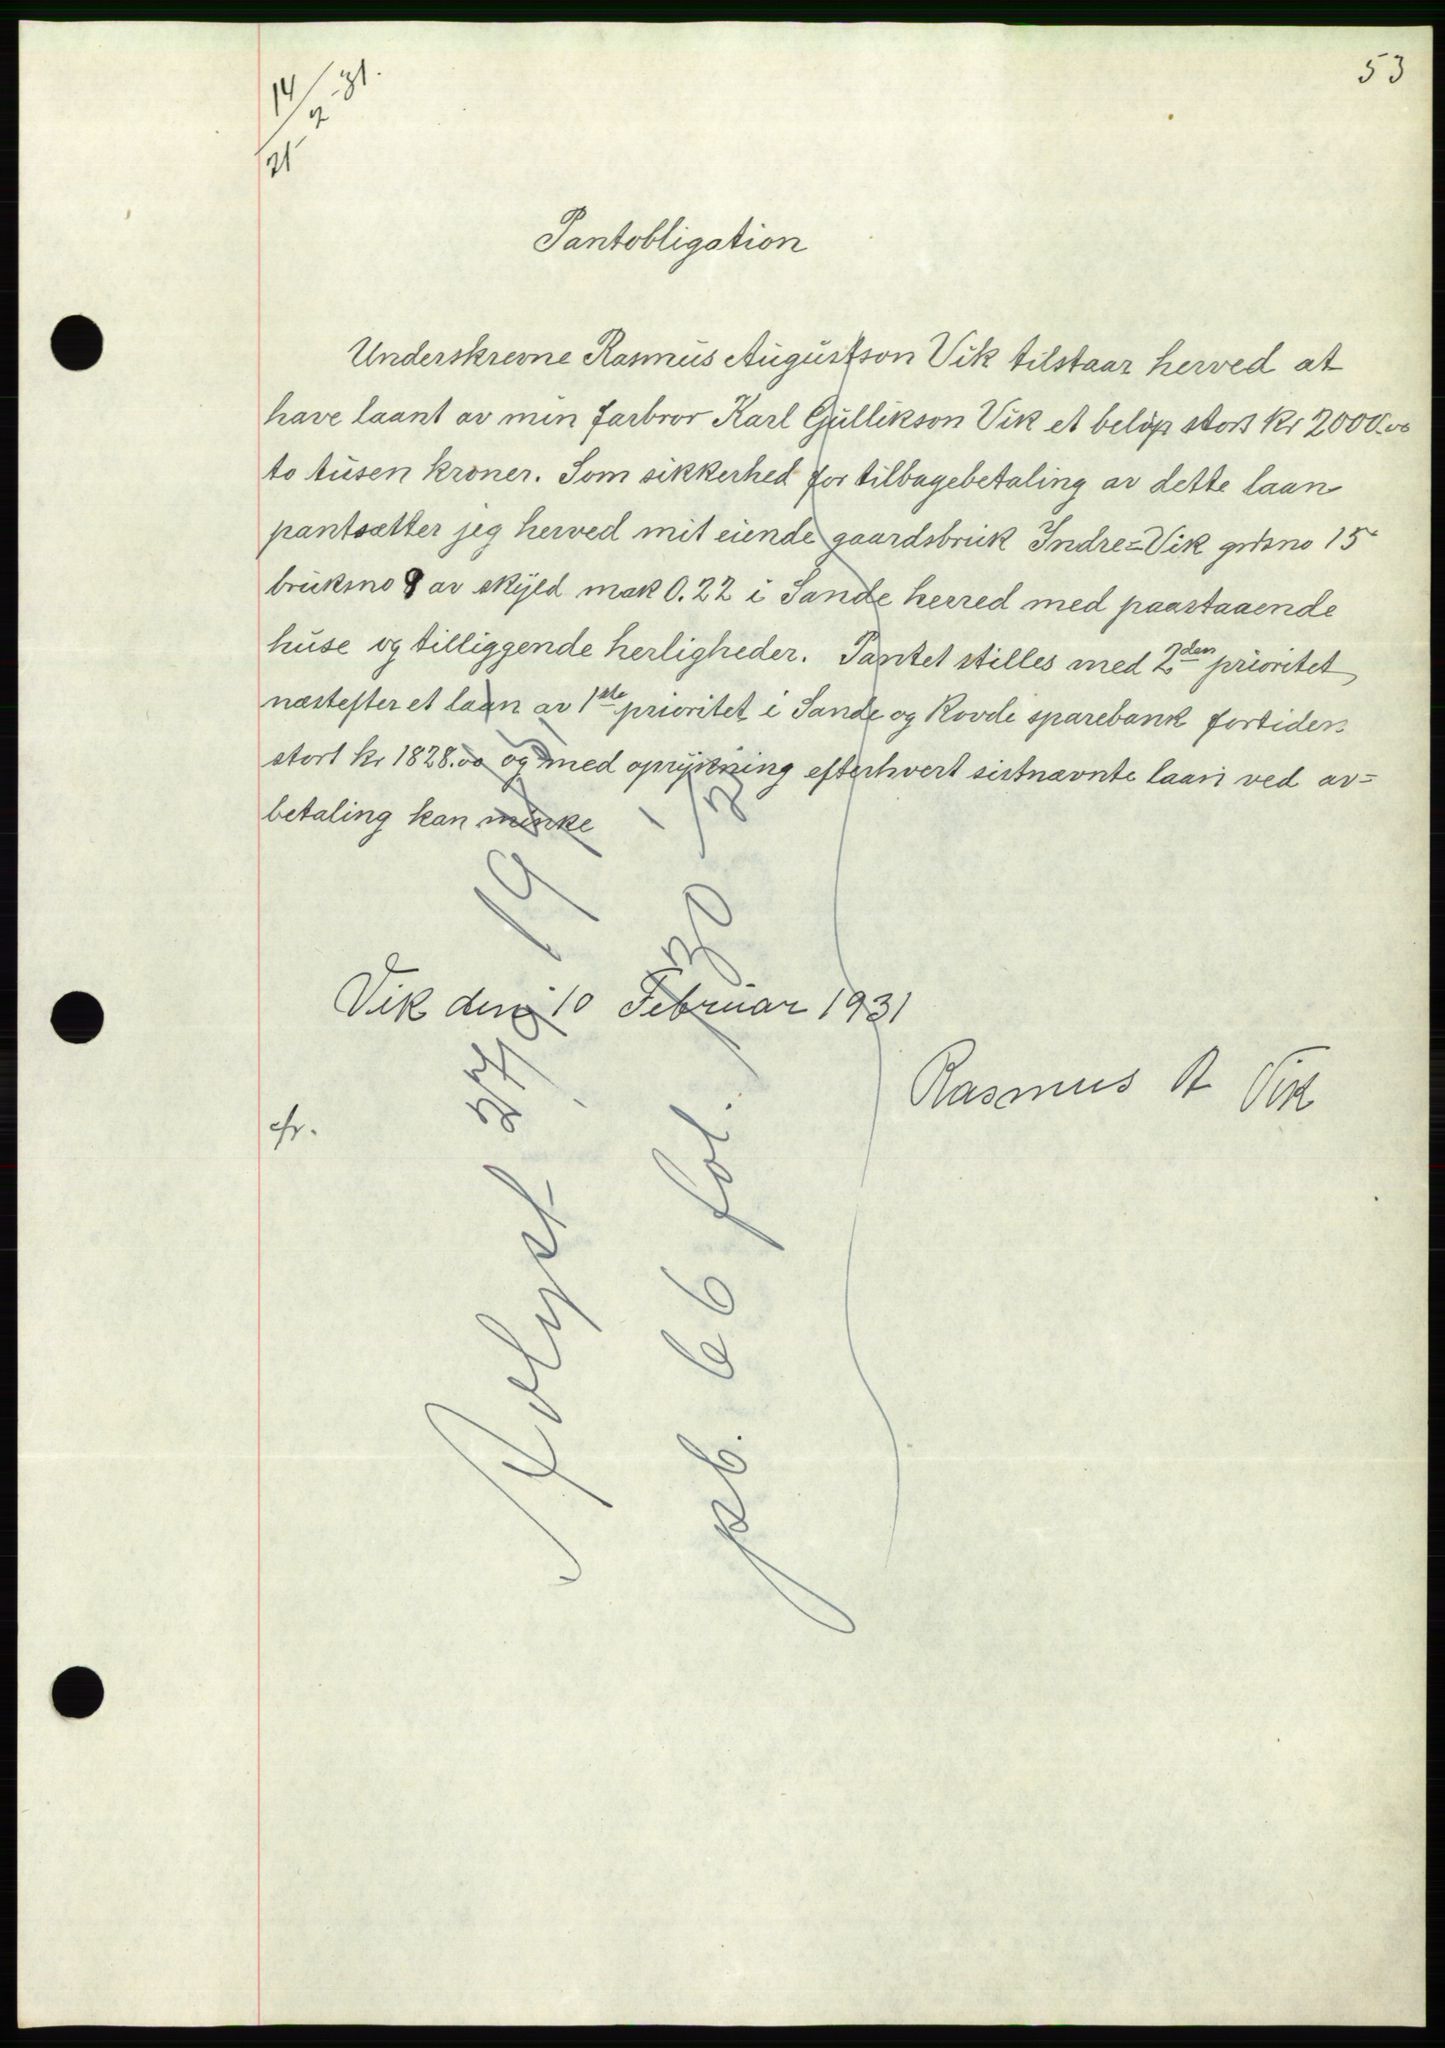 53
14/2-31.
21
Pantobligation
Underskrevne Rasmus Augustson Vik tilstaar herved at
have laant av min farbror Karl Gullikson Vik et beløp stort kr 2000.00
to tusen kroner. Som sikkerhed for tilbagebetaling av dette laan
pantsætter jeg herved mit eiende gaardsbruk Indre=Vik grdsno 15
bruksno 9 av skyld mak 0.22 i Sande herred med paastaaende
huse og tilliggende herligheder. Pantet stilles med 2den prioritet
næstefter et laan av 1ste prioritet i Sande og Rovde sparebank fortiden
stort kr 1828.00 og med oprykning efterhvert sistnævnte laan ved av=
betaling kan minke
Vik den 10 Februar 1931
Rasmus A Vik
cfr.
Avlyst 27/9 19
pb. 66 fol.